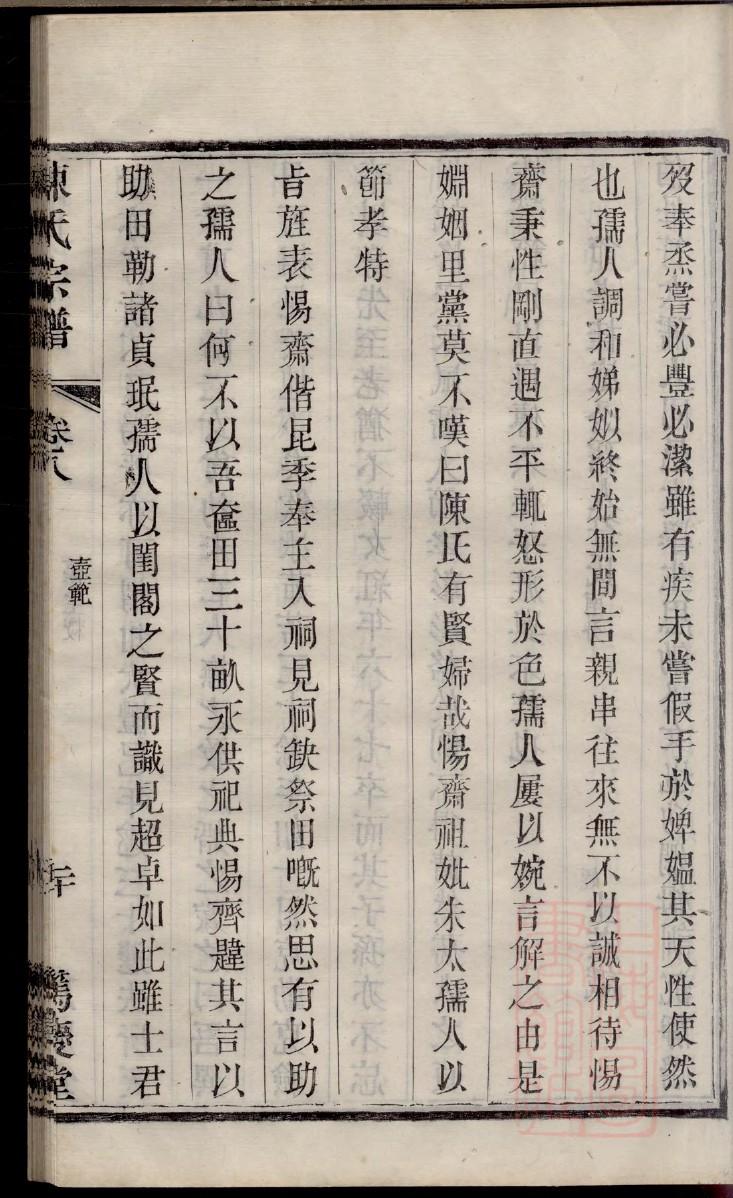 歿奉烝嘗必豐必潔雖有疾未嘗假手於婢媼其天性使然
也孺人調和娣姒終始無間言親串往來無不以誠相待惕
齋秉性剛直遇不平輒怒形於色孺人屢以婉言解之由是
婣姻里黨莫不嘆曰陳氏有賢婦哉惕齋祖妣朱太孺人以
節孝特
旨旌表惕齋偕昆季奉主入祠見祠缺祭田嘅然思有以助
之孺人曰何不以吾奩田三十畝永供祀典惕齊韙其言以
助田勒諸貞珉孺人以閨閣之賢而識見超卓如此雖士君
陳氏宗譜
卷八
壼範
二十
篤慶堂